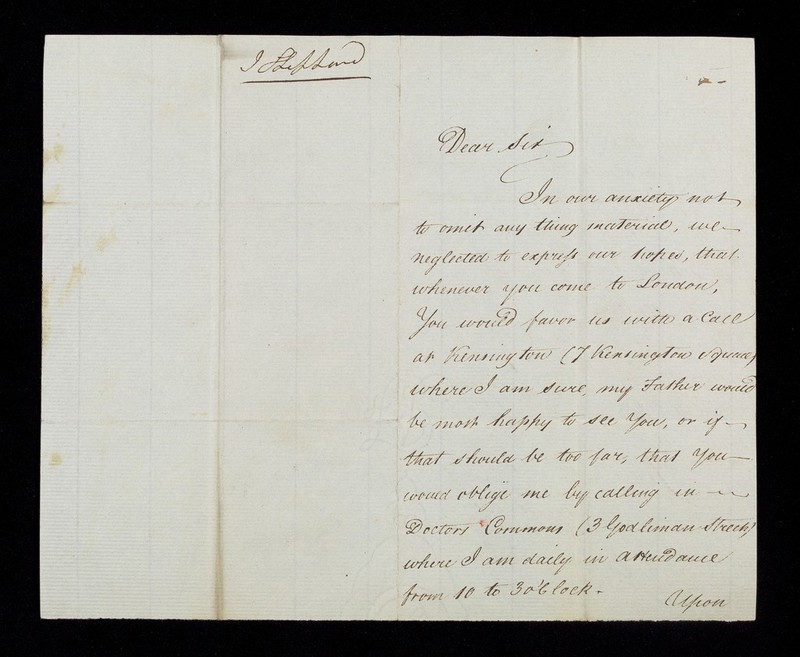 J Sheppard
Dear Sir
In our anxiety not
to omit any thing material, we
neglected to express our hopes, that
whenever you come to London,
You would favor us with a Call
at Kensington (7 Kensington Square)
where I am sure, my Father would
be most happy to see You, or if
that should be too far, that You
would oblige me by calling in
Doctors Commons (3 Godliman Street)
where I am daily in Attendance
from 10 to 3 o'Clock.
Upon